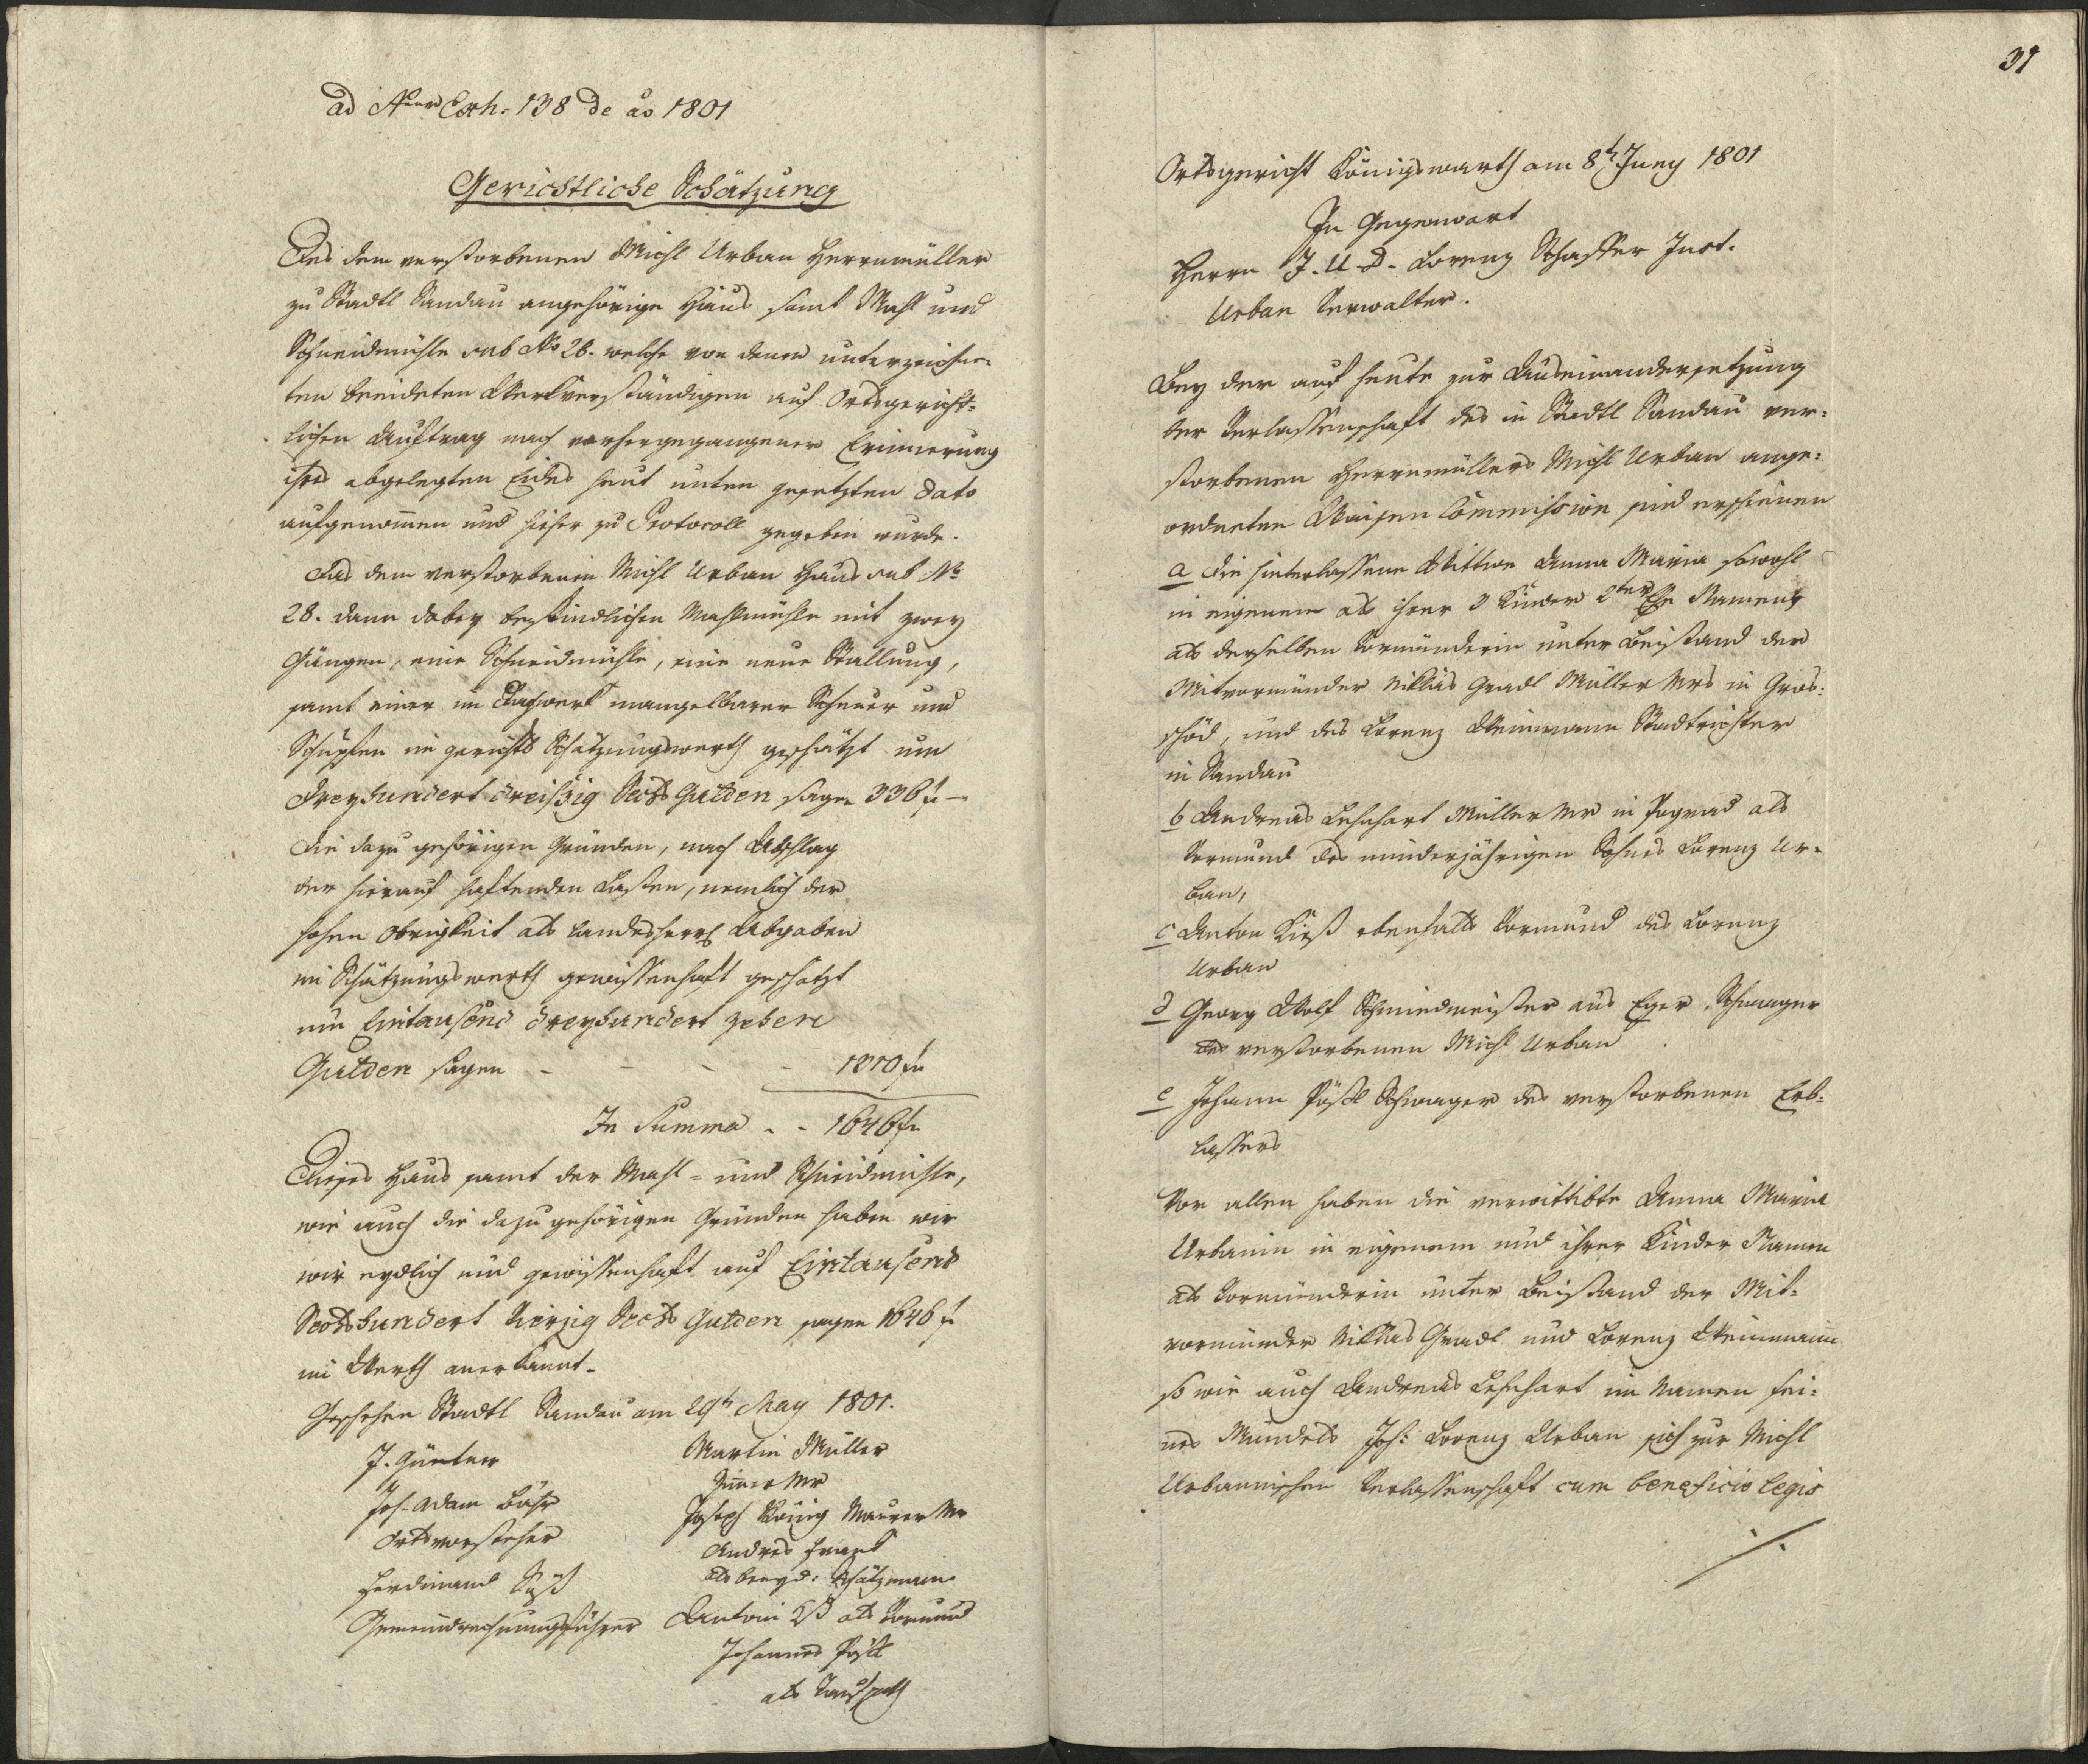 ad Num Exh: 138 de ao 1801
Gerichtliche Schätzung
Des dem verstorbenen Michl Urban Herrnmüller
zu Stadtl Sandau angehörige Haus samt Mahl und
Schneidmühle sub No 28. welche von denen unterzeichne-
ten beeideten Werkverständigen auf Ortsgericht-
lichen Auftrag nach vorhergegangener Erinnerung
ihres abgelegten Eides heut unten gesetzten Dato
aufgenommen und hieher zu Protocoll gegeben wurde.
Das dem verstorbenen Michl Urban Haus sub No
28. dann dabey befindlichen Mahlmühle mit zwey
Gängen, eine Schneidmühle, eine neue Stallung,
samt einer im Dachwerk mangelbarer Scheuer und
Schupfen in gerichts Schätzungswerth geschätzt um
Dreyhundert dreißig Sechs Gulden sage 336 f –
Die dazu gehörigen Gründen, nach Abschlag
der hierauf haftenden Lasten, nemlich der
hohen Obrigkeit als landesherrl Abgaben
im Schätzungswerth gewissenhaft geschätzt
um Eintausend dreyhundert zehen
Gulden sagen - - - - 1310 fn
In Summa - - 1646 fn
Dieses Haus samt der Mahl- und Schneidmühle,
wie auch die dazu gehörigen Gründen haben wir
wir eydlich und gewissenhaft auf Eintausend
Sechshundert Vierzig Sechs Gulden sagen 1646 f
im Werth anerkannt.
Geschehen Stadtl Sandau am 29t May 1801.
J. Günter
Joh. Adam Bähr
Ortsvorsteher
Ferdinand Süß
Gemeindrechnungsführer
Martin Müller
Zimer Mr
Joseph König Maurer Mr
Andres Frank
als beeyd: Schätzmann
Antoni als Vormund
Johannes Pöstl
als
31
Ortsgericht Königswarth am 8t Juny 1801
In Gegenwart
Herrn J. U. D. Lorenz Schaffer Just.
Urban Verwalter.
Bey der auf heute zur Auseinandersetzung
der Verlassenschaft des in Städtl Sandau ver-
storbenen Herrnmüllers Michl Urban ange-
ordneten Waisen Commission sind erschienen
a die hinterlassene Wittwe Anna Maria sowohl
in eigenem als ihrer 3 Kinder 2ter Ehe Namens
als derselben Vormünderin unter Beistand der
Mitvormünder Niklas Gradl Müller Mrs in Gros-
schöd, und des Lorenz Weinmann Stadtrichter
in Sandau
b Andreas Lehnhart Müller Mr in Pograd als
Vormund des minderjährigen Sohnes Lorenz Ur-
ban,
c Anton Kieß ebenfalls Vormund des Lorenz
Urban
d Georg Wolf Schmiedmeister aus Eger, Schwager
des verstorbenen Michl Urban
e Johann Pöstl Schwager des verstorbenen Erb-
lassers
Vor allen haben die verwittibte Anna Maria
Urbanin in eigenem und ihrer Kinder Namen
als Vormünderin unter Beistand der Mit-
vormünder Niklas Gradl und Lorenz Weinmann
so wie auch Andreas Lehnhart im Namen sei-
nes Mündels Joh: Lorenz Urban sich zur Michl
Urbannischen Verlassenschaft cum beneficio legis
./.